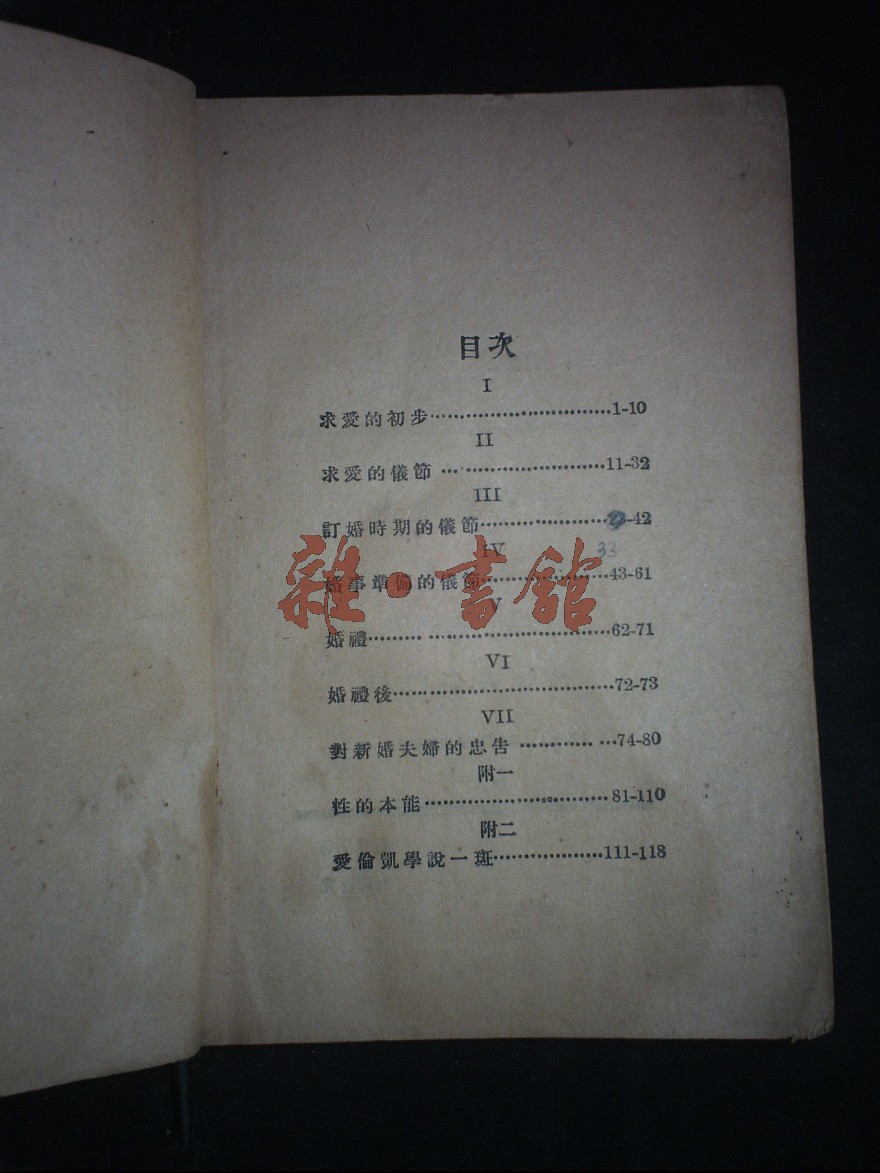 目次
I
求愛的初步························1-10
II
求愛的儀節························11-32
III
訂婚時期的儀節························23-42
33
IV
婚事準備的儀節························43-61
V
婚禮························62-71
VI
婚禮後························72-73
VII
對新婚夫婦的忠告························74-80
附一
性的本能························81-110
附二
愛倫凱學說一斑························111-118
雜·書館